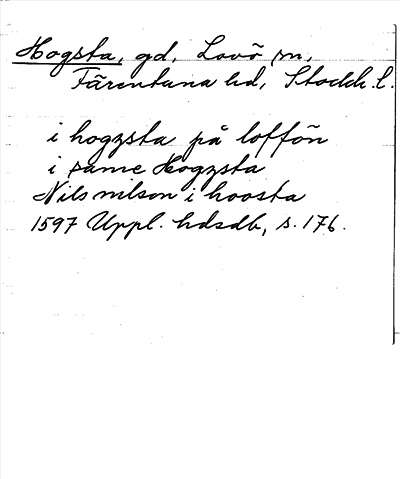 Hogsta, gd, Lovö sn,
Färentuna hd, Stockh. l.
i hogzsta på loffön
i samme Hogzsta
Nils nilson i hoosta
1597 Uppl. hdsdb, s. 176.